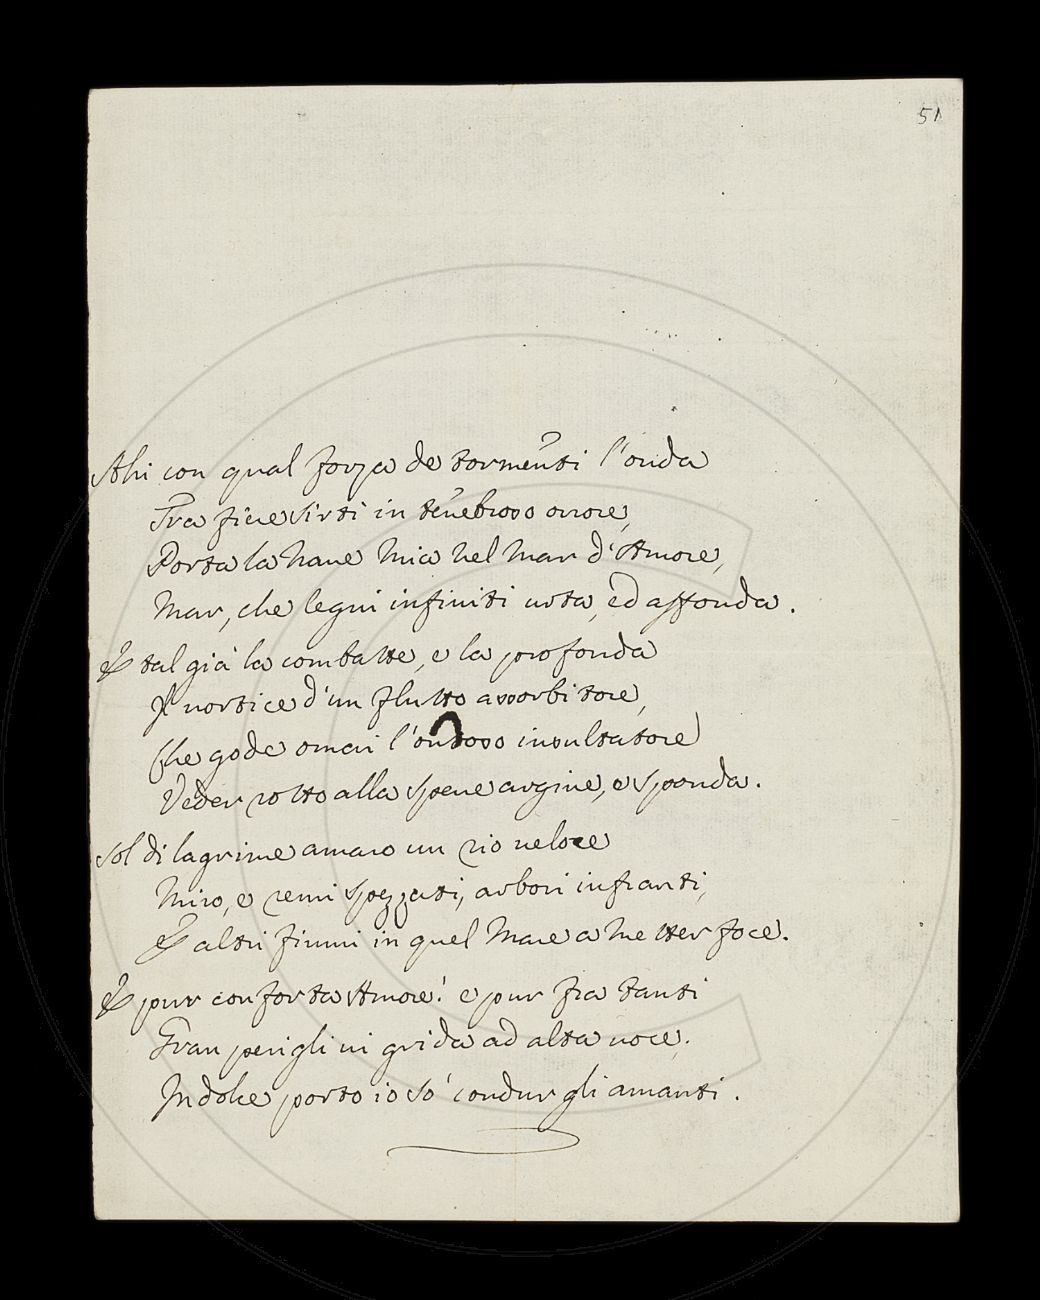 51
Ahi con qual forza de tormenti l'onda
Fra fiere Sirti in tenebroso orrore,
Porta la Nave mia nel Mar d'Amore,
Mar, che legni infiniti urta, ed affonda.
E tal già la combatte, e la profonda
Il vortice d'un flutto assorbitore,
Che gode omai l'ontoso insultatore
Veder rotto alla Spene argine, e Sponda.
Sol di lagrime amaro un rio veloce
Miro, e remi Spezzati, arbori infranti,
E altri fiumi in quel Mare a metter foce.
E pur conforta Amore! e pur fra tanti
Gran perigli vi grida ad alta voce:
In dolce porto io só condur gli amanti.